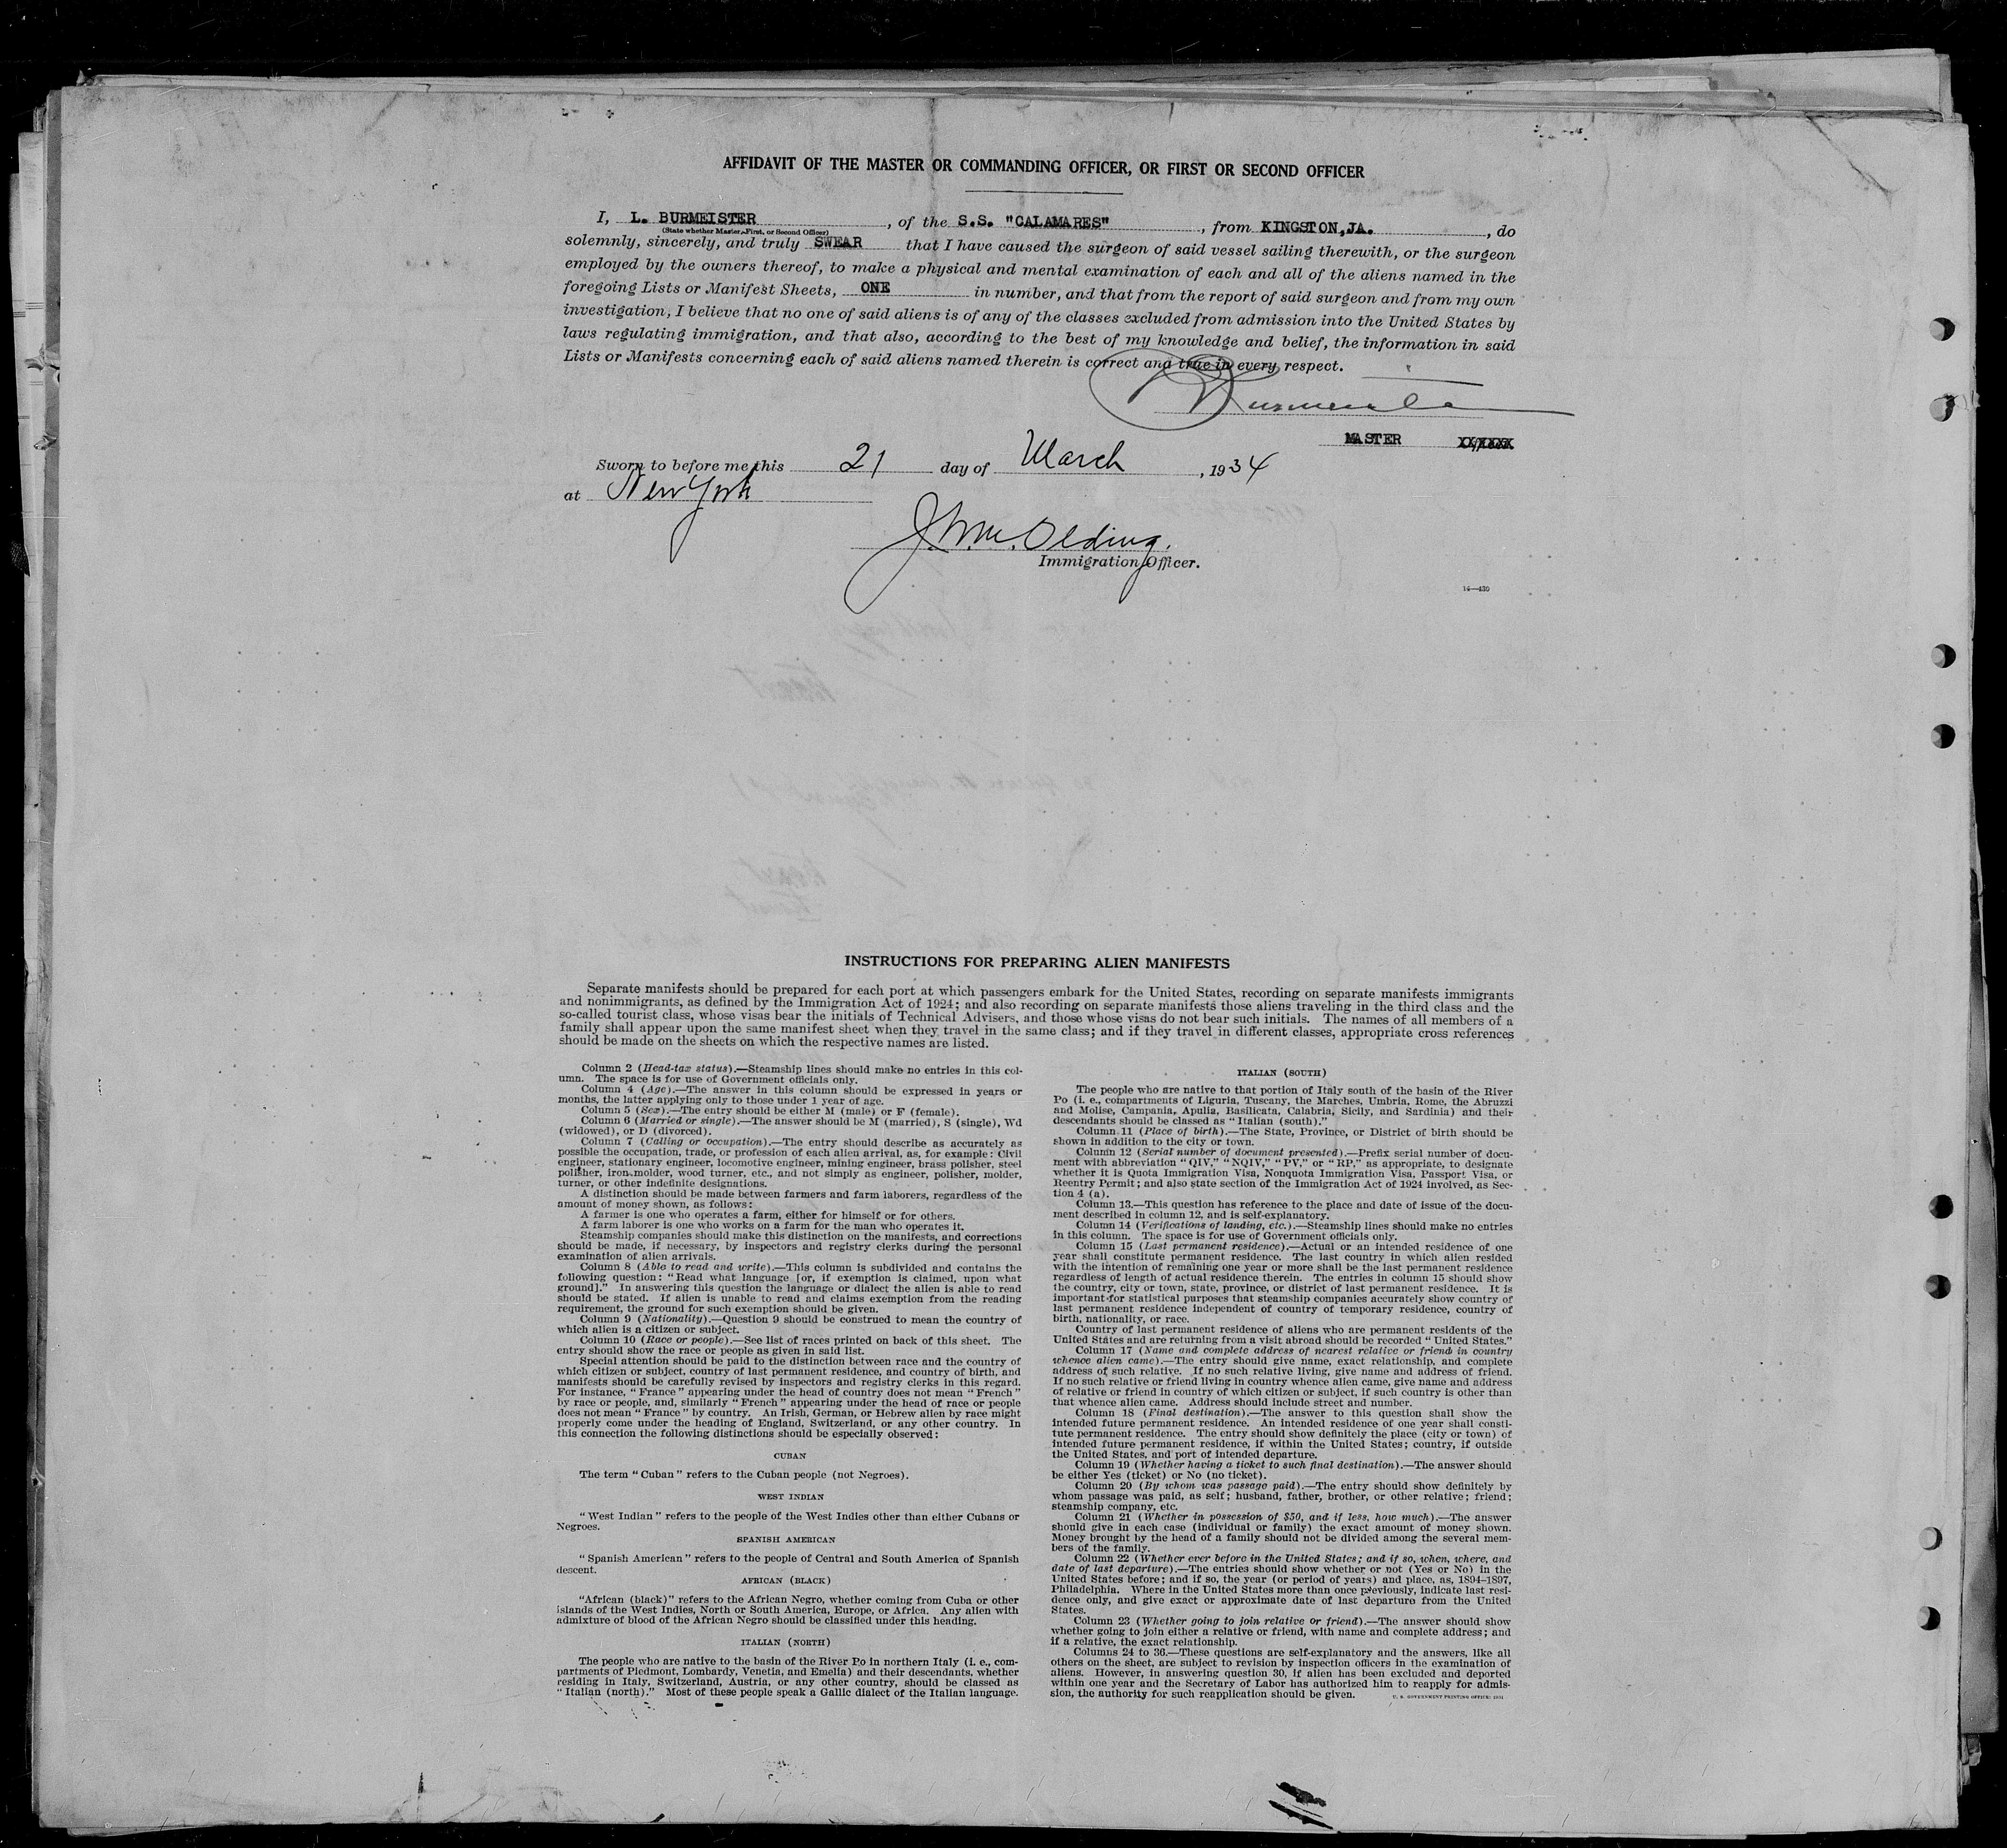 AFFIDAVIT OF THE MASTER OR COMMANDING OFFICER, OR FIRST OR SECOND OFFICER
I, L. BURMEISTER, of the S.S. "CALAMARES", from KINGSTON, JA., do
(State whether Master, First, or Second Officer)
solemnly, sincerely, and truly SWEAR that I have caused the surgeon of said vessel sailing therewith, or the surgeon
employed by the owners thereof, to make a physical and mental examination of each and all of the aliens named in the
foregoing Lists or Manifest Sheets, ONE in number, and that from the report of said surgeon and from my own
investigation, I believe that no one of said aliens is of any of the classes excluded from admission into the United States by
laws regulating immigration, and that also, according to the best of my knowledge and belief, the information in said
Lists or Manifests concerning each of said aliens named therein is correct and true in every respect.
Burmeister
MASTER XX/XXXX
Sworn to before me this 21 day of March, 1934
at New York
J. Wm. Olding.
Immigration Officer.
14—430
INSTRUCTIONS FOR PREPARING ALIEN MANIFESTS
Separate manifests should be prepared for each port at which passengers embark for the United States, recording on separate manifests immigrants
and nonimmigrants, as defined by the Immigration Act of 1924; and also recording on separate manifests those aliens traveling in the third class and the
so-called tourist class, whose visas bear the initials of Technical Advisers, and those whose visas do not bear such initials. The names of all members of a
family shall appear upon the same manifest sheet when they travel in the same class; and if they travel in different classes, appropriate cross references
should be made on the sheets on which the respective names are listed.
Column 2 (Head-tax status).—Steamship lines should make no entries in this col-
umn. The space is for use of Government officials only.
Column 4 (Age).—The answer in this column should be expressed in years or
months, the latter applying only to those under 1 year of age.
Column 5 (Sex).—The entry should be either M (male) or F (female).
Column 6 (Married or single).—The answer should be M (married), S (single), Wd
(widowed), or D (divorced).
Column 7 (Calling or occupation).—The entry should describe as accurately as
possible the occupation, trade, or profession of each alien arrival, as, for example: Civil
engineer, stationary engineer, locomotive engineer, mining engineer, brass polisher, steel
polisher, iron molder, wood turner, etc., and not simply as engineer, polisher, molder,
turner, or other indefinite designations.
A distinction should be made between farmers and farm laborers, regardless of the
amount of money shown, as follows:
A farmer is one who operates a farm, either for himself or for others.
A farm laborer is one who works on a farm for the man who operates it.
Steamship companies should make this distinction on the manifests, and corrections
should be made, if necessary, by inspectors and registry clerks during the personal
examination of alien arrivals.
Column 8 (Able to read and write).—This column is subdivided and contains the
following question: "Read what language [or, if exemption is claimed, upon what
ground]." In answering this question the language or dialect the alien is able to read
should be stated. If alien is unable to read and claims exemption from the reading
requirement, the ground for such exemption should be given.
Column 9 (Nationality).—Question 9 should be construed to mean the country of
which alien is a citizen or subject.
Column 10 (Race or people).—See list of races printed on back of this sheet. The
entry should show the race or people as given in said list.
Special attention should be paid to the distinction between race and the country of
which citizen or subject, country of last permanent residence, and country of birth, and
manifests should be carefully revised by inspectors and registry clerks in this regard.
For instance, "France" appearing under the head of country does not mean "French"
by race or people, and, similarly "French" appearing under the head of race or people
does not mean "France" by country. An Irish, German, or Hebrew alien by race might
properly come under the heading of England, Switzerland, or any other country. In
this connection the following distinctions should be especially observed:
CUBAN
The term "Cuban" refers to the Cuban people (not Negroes).
WEST INDIAN
"West Indian" refers to the people of the West Indies other than either Cubans or
Negroes.
SPANISH AMERICAN
"Spanish American" refers to the people of Central and South America of Spanish
descent.
AFRICAN (BLACK)
"African (black)" refers to the African Negro, whether coming from Cuba or other
islands of the West Indies, North or South America, Europe, or Africa. Any alien with
admixture of blood of the African Negro should be classified under this heading.
ITALIAN (NORTH)
The people who are native to the basin of the River Po in northern Italy (i. e., com-
partments of Piedmont, Lombardy, Venetia, and Emelia) and their descendants, whether
residing in Italy, Switzerland, Austria, or any other country, should be classed as
"Italian (north)." Most of these people speak a Gallic dialect of the Italian language.
ITALIAN (SOUTH)
The people who are native to that portion of Italy south of the basin of the River
Po (i. e., compartments of Liguria, Tuscany, the Marches, Umbria, Rome, the Abruzzi
and Molise, Campania, Apulia, Basilicata, Calabria, Sicily, and Sardinia) and their
descendants should be classed as "Italian (south)."
Column 11 (Place of birth).—The State, Province, or District of birth should be
shown in addition to the city or town.
Column 12 (Serial number of document presented).—Prefix serial number of docu-
ment with abbreviation "QIV," "NQIV," "PV," or "RP," as appropriate, to designate
whether it is Quota Immigration Visa, Nonquota Immigration Visa, Passport Visa, or
Reentry Permit; and also state section of the Immigration Act of 1924 involved, as Sec-
tion 4 (a).
Column 13.—This question has reference to the place and date of issue of the docu-
ment described in column 12, and is self-explanatory.
Column 14 (Verifications of landing, etc.).—Steamship lines should make no entries
in this column. The space is for use of Government officials only.
Column 15 (Last permanent residence).—Actual or an intended residence of one
year shall constitute permanent residence. The last country in which alien resided
with the intention of remaining one year or more shall be the last permanent residence
regardless of length of actual residence therein. The entries in column 15 should show
the country, city or town, state, province, or district of last permanent residence. It is
important for statistical purposes that steamship companies accurately show country of
last permanent residence independent of country of temporary residence, country of
birth, nationality, or race.
Country of last permanent residence of aliens who are permanent residents of the
United States and are returning from a visit abroad should be recorded "United States."
Column 17 (Name and complete address of nearest relative or friend in country
whence alien came).—The entry should give name, exact relationship, and complete
address of such relative. If no such relative living, give name and address of friend.
If no such relative or friend living in country whence alien came, give name and address
of relative or friend in country of which citizen or subject, if such country is other than
that whence alien came. Address should include street and number.
Column 18 (Final destination).—The answer to this question shall show the
intended future permanent residence. An intended residence of one year shall consti-
tute permanent residence. The entry should show definitely the place (city or town) of
intended future permanent residence, if within the United States; country, if outside
the United States, and port of intended departure.
Column 19 (Whether having a ticket to such final destination).—The answer should
be either Yes (ticket) or No (no ticket).
Column 20 (By whom was passage paid).—The entry should show definitely by
whom passage was paid, as self; husband, father, brother, or other relative; friend;
steamship company, etc.
Column 21 (Whether in possession of $50, and if less, how much).—The answer
should give in each case (individual or family) the exact amount of money shown.
Money brought by the head of a family should not be divided among the several mem-
bers of the family.
Column 22 (Whether ever before in the United States; and if so, when, where, and
date of last departure).—The entries should show whether or not (Yes or No) in the
United States before; and if so, the year (or period of years) and place, as, 1894–1897,
Philadelphia. Where in the United States more than once previously, indicate last resi-
dence only, and give exact or approximate date of last departure from the United
States.
Column 23 (Whether going to join relative or friend).—The answer should show
whether going to join either a relative or friend, with name and complete address; and
if a relative, the exact relationship.
Columns 24 to 36.—These questions are self-explanatory and the answers, like all
others on the sheet, are subject to revision by inspection officers in the examination of
aliens. However, in answering question 30, if alien has been excluded and deported
within one year and the Secretary of Labor has authorized him to reapply for admis-
sion, the authority for such reapplication should be given.
U. S. GOVERNMENT PRINTING OFFICE: 1931